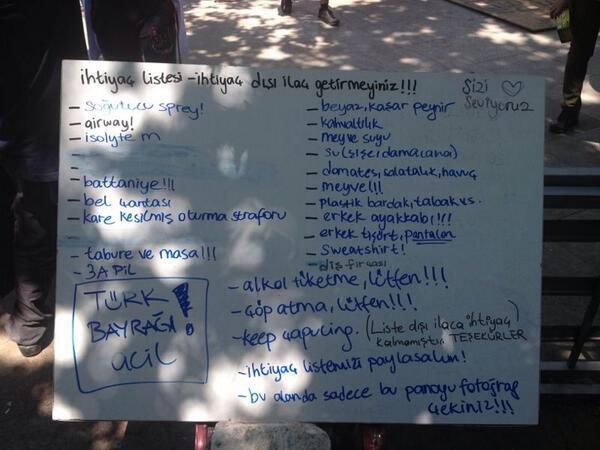 ihtiyaç listesi -ihtiyaç dışı ilaç getirmeyiniz!!!
Sizi ♡
Seviyoruz
- Soğutucu sprey!
- airway!
- isolyte m
- battaniye!!!
- bel çantası
- kare kesilmiş oturma straforu
- tabure ve masa!!!
- 3A PİL
- beyaz, kaşar peynir
- kahvaltılık
- meyve suyu
- su (şişe, damacana)
- domates, salatalık, havuç
- meyve!!!
- plastik bardak, tabak vs.
- erkek ayakkabı!!!
- erkek tişört, pantalon
- sweatshirt!
- diş fırçası
TÜRK
BAYRAĞI!
acil
- alkol tüketme, lütfen!!!
- çöp atma, lütfen!!!
- keep çapuling. (Liste dışı ilaca ihtiyaç
kalmamıştır TEŞEKÜRLER
- ihtiyaç listemizi paylaşalım!
- bu alanda sadece bu panoyu fotoğraf
çekiniz!!!